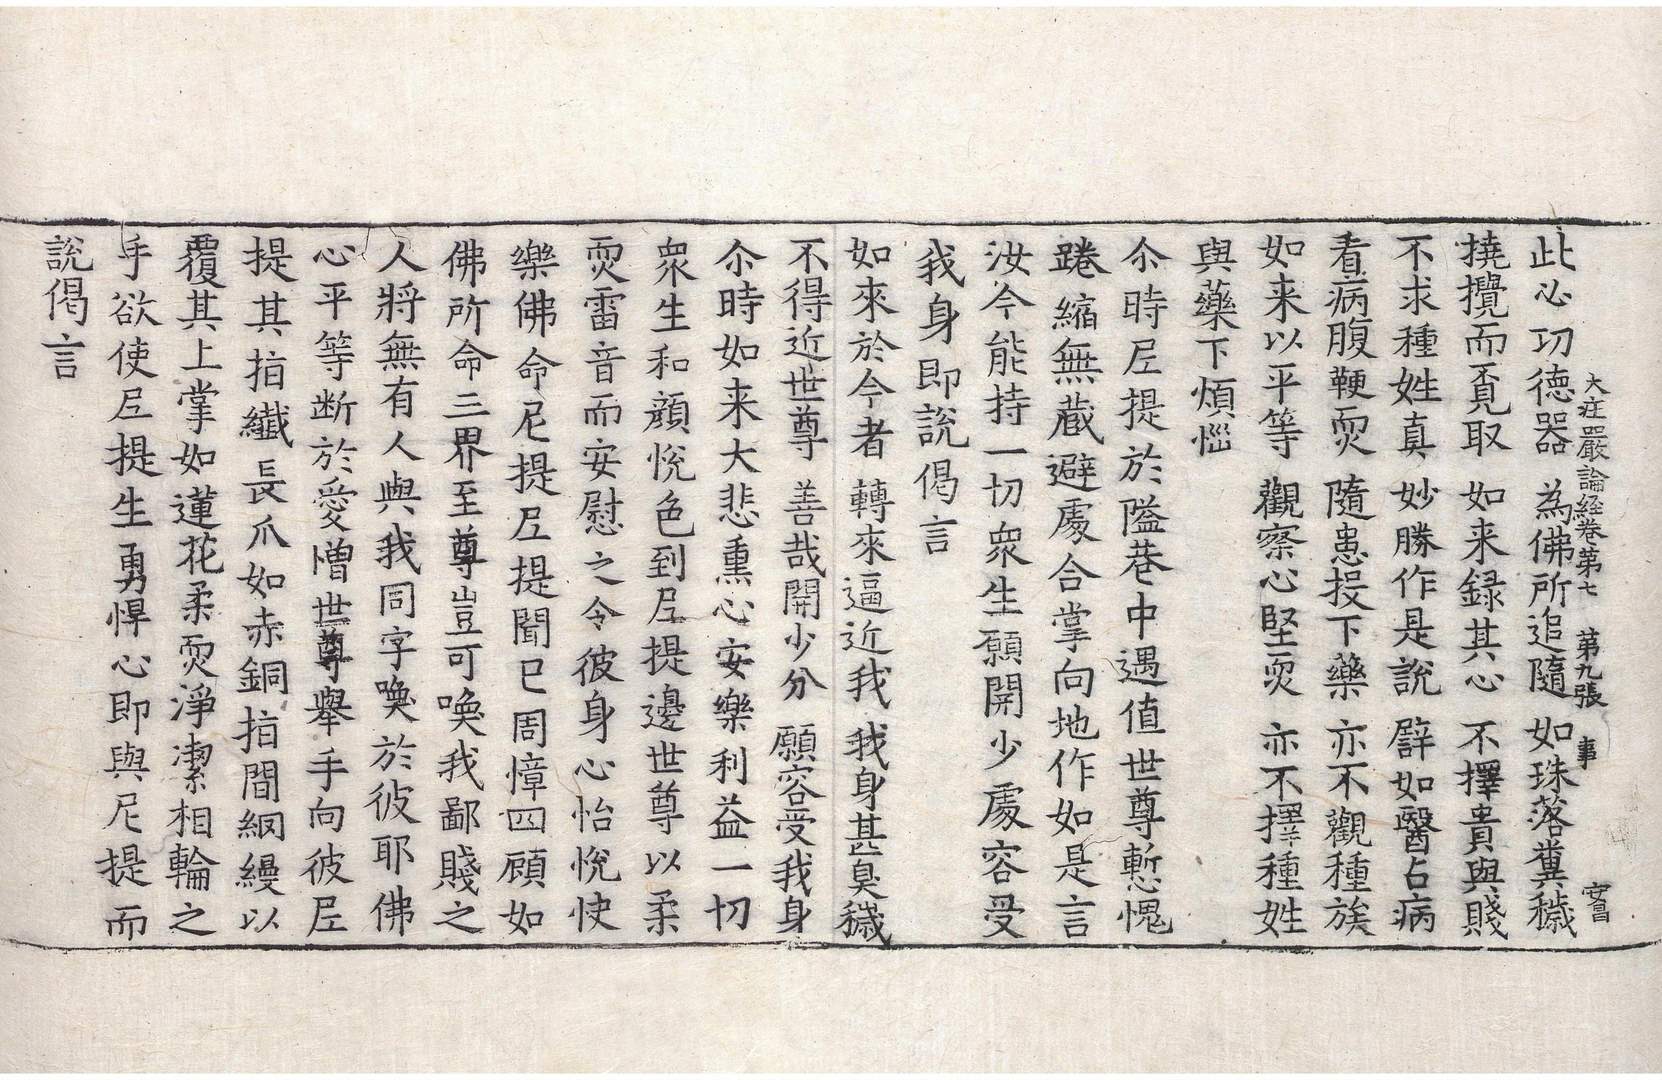 大庄嚴論経卷第七　第九張　事　安昌
此心功德器　為佛所追隨　如珠落糞穢
撓攪而覓取　如来録其心　不擇貴與賤
不求種姓真　妙勝作是說　譬如醫占病
看病腹鞕耎　隨患投下藥　亦不觀種族
如来以平等　觀察心堅耎　亦不擇種姓
與藥下煩惱
尒時𡰱提於隘巷中遇值世尊慙愧
踡縮無藏避處合掌向地作如是言
汝今能持一切衆生願開少處容受
我身即說偈言
如來於今者　轉來逼近我　我身甚臭穢
不得近世尊　善哉開少分　願容受我身
尒時如来大悲熏心安樂利益一切
衆生和顔悅色到𡰱提邊世尊以柔
耎雷音而安慰之令彼身心怡悅快
樂佛命尼提𡰱提聞已周慞四顧如
佛所命三界至尊豈可喚我鄙賤之
人將無有人與我同字喚於彼耶佛
心平等断於愛憎世尊舉手向彼𡰱
提其指纖長爪如赤銅指間網縵以
覆其上掌如蓮花柔耎淨潔相輪之
手欲使𡰱提生勇悍心即與尼提而
說偈言